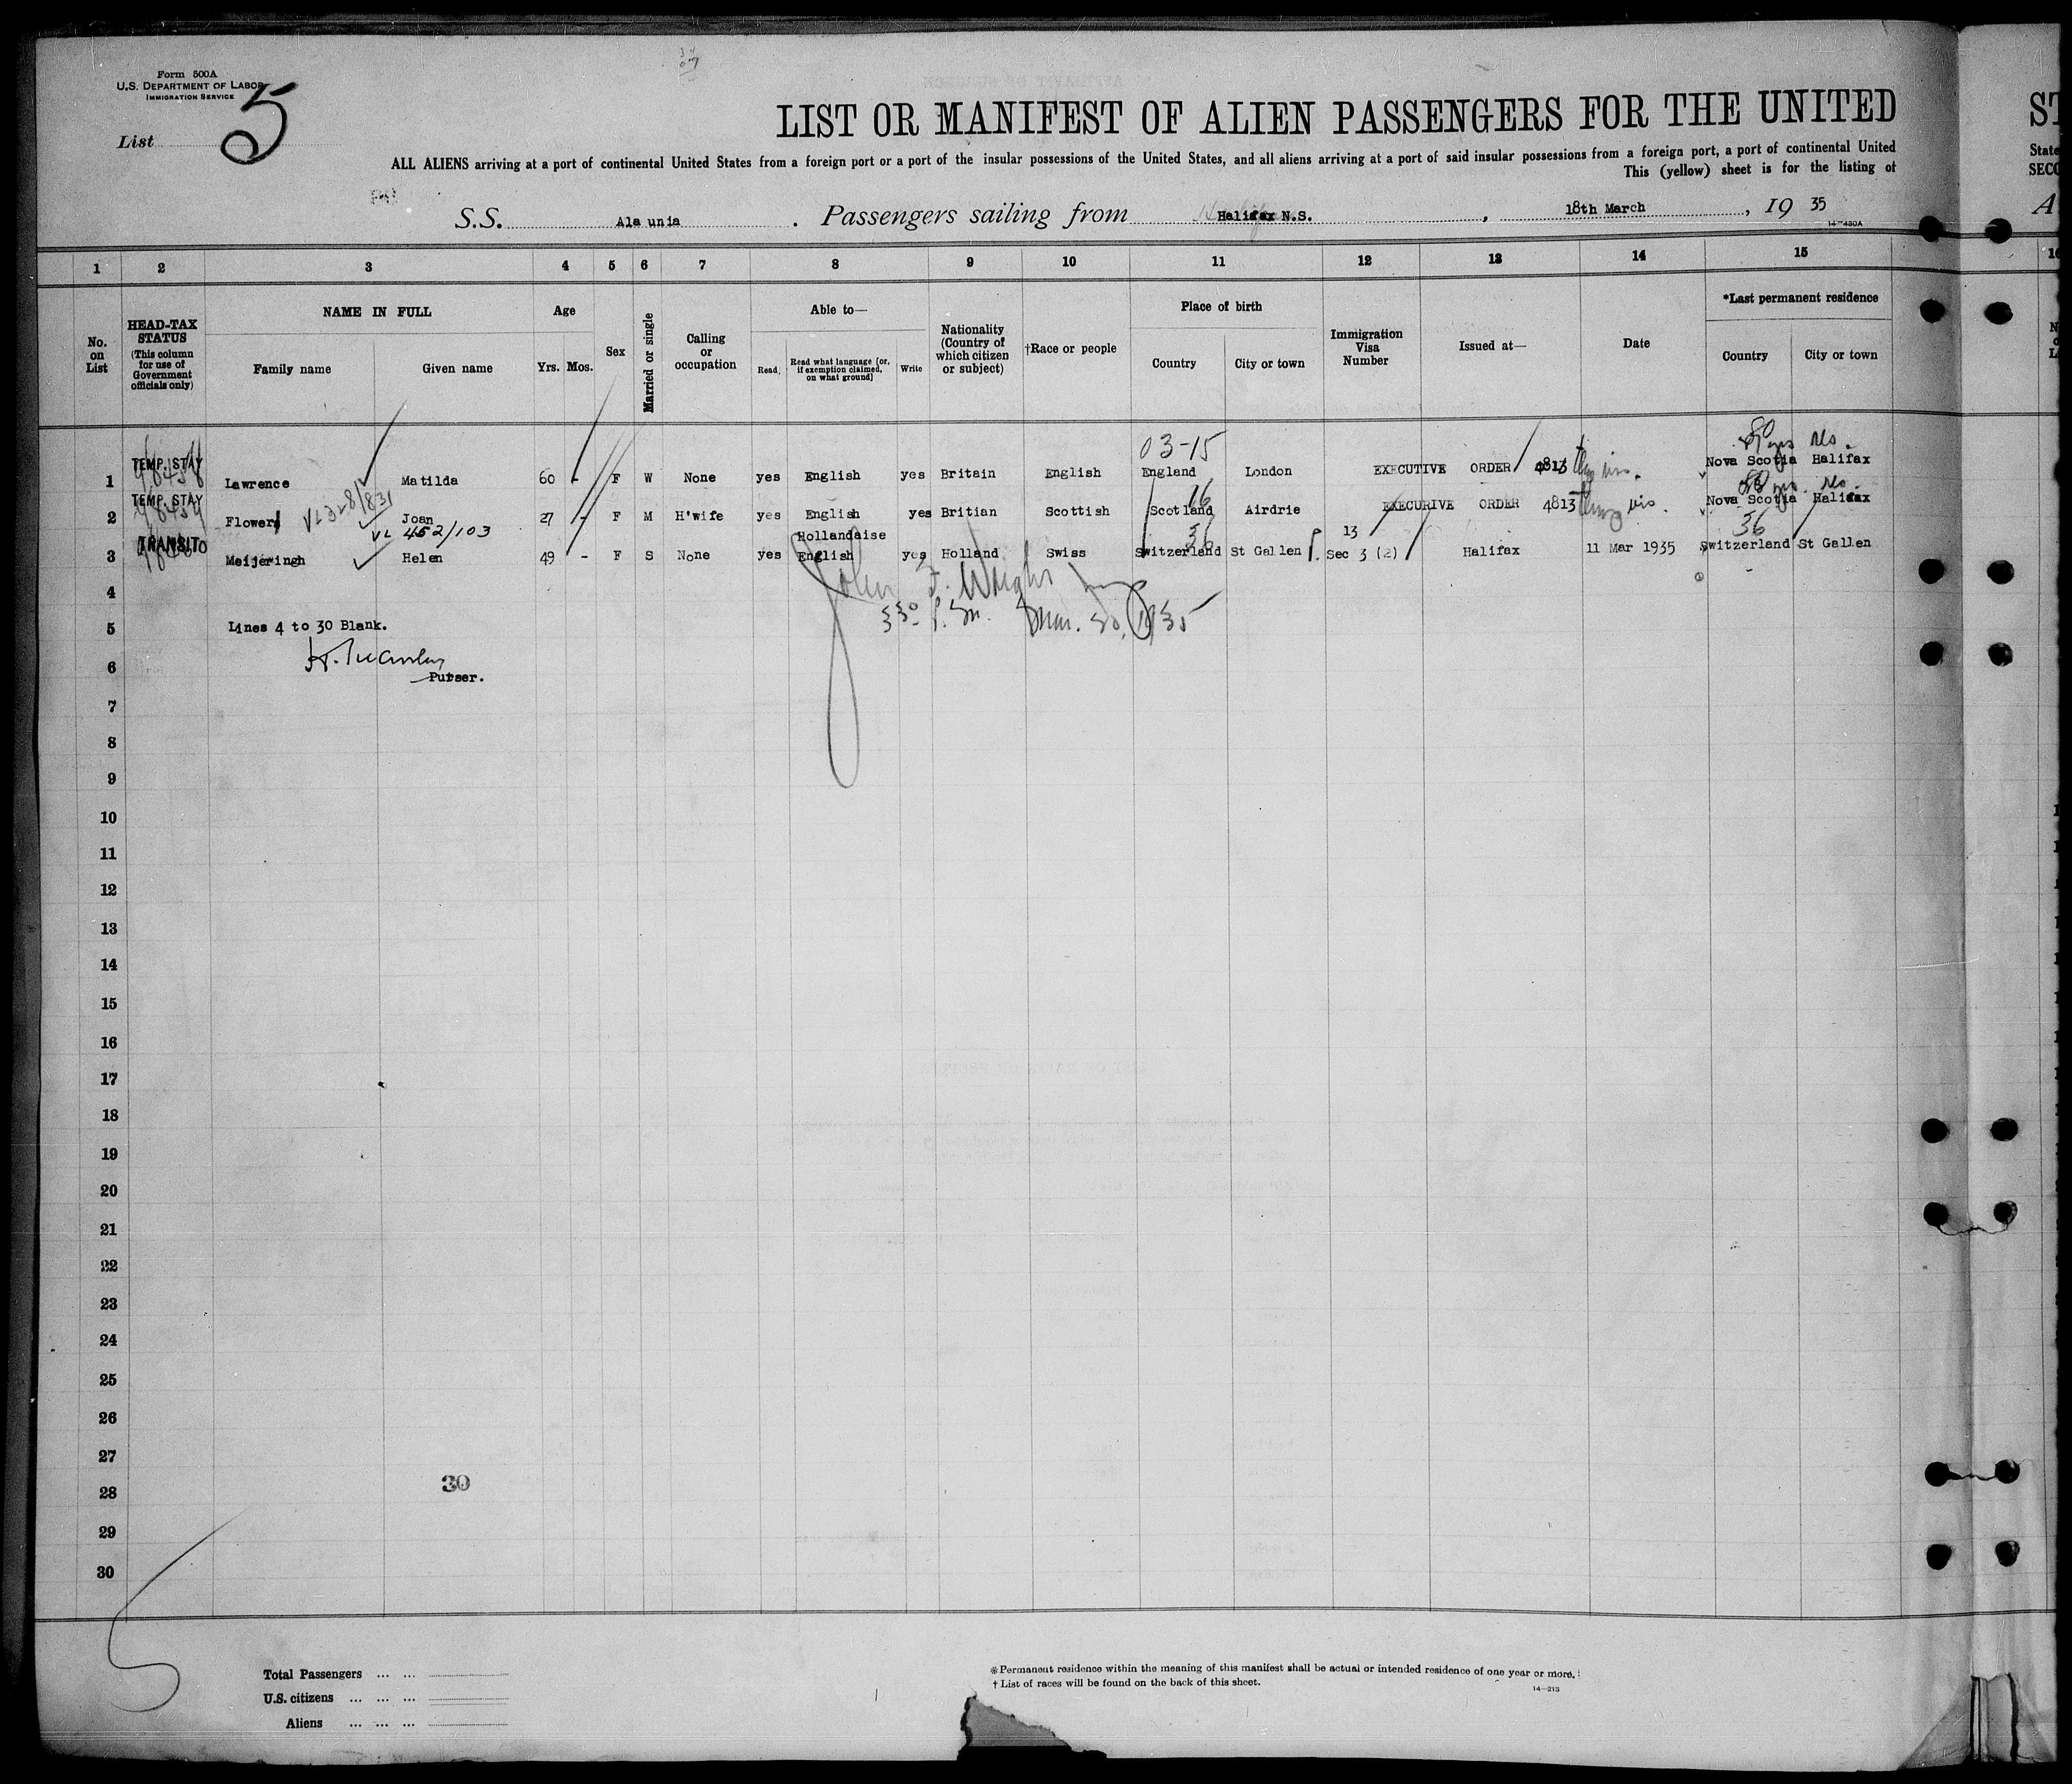 Form 500A
U.S. DEPARTMENT OF LABOR
IMMIGRATION SERVICE
List 5
LIST OR MANIFEST OF ALIEN PASSENGERS FOR THE UNITED
ST
ALL ALIENS arriving at a port of continental United States from a foreign port or a port of the insular possessions of the United States, and all aliens arriving at a port of said insular possessions from a foreign port, a port of continental United
State
This (yellow) sheet is for the listing of
SECO
S.S. Ala unia . Passengers sailing from Halifax N.S. , 18th March , 19 35
A
14-480A
1 2 3 4 5 6 7 8 9 10 11 12 13 14 15
No. on List
HEAD-TAX STATUS
(This column for use of Government officials only)
NAME IN FULL
Family name Given name
Age
Yrs. Mos.
Sex
Married or single
Calling or occupation
Able to—
Read
Read what language [or, if exemption claimed, on what ground]
Write
Nationality (Country of which citizen or subject)
†Race or people
Place of birth
Country City or town
Immigration Visa Number
Issued at—
Date
*Last permanent residence
Country City or town
03-15
1 TEMP. STAY Lawrence Matilda 60 - F W None yes English yes Britain English England London EXECUTIVE ORDER 4813 Nova Scotia Halifax
VL328/831
16
2 TEMP. STAY Flower Joan 27 - F M H'wife yes English yes Britian Scottish Scotland Airdrie EXECURIVE ORDER 4813 Nova Scotia Halifax
VL 452/103
Hollandaise 36 13 36
3 TRANSIT Meijeringh Helen 49 - F S None yes English yes Holland Swiss Switzerland St Gallen Sec 3 (2) Halifax 11 Mar 1935 Switzerland St Gallen
4
John F. Wright
330 P.M. Mar. 20, 1935
5 Lines 4 to 30 Blank.
6
Purser.
7
8
9
10
11
12
13
14
15
16
17
18
19
20
21
22
23
24
25
26
27
30
28
29
30
Total Passengers ... ...
U.S. citizens ... ... ...
Aliens ... ... ...
*Permanent residence within the meaning of this manifest shall be actual or intended residence of one year or more.
† List of races will be found on the back of this sheet.
14-213